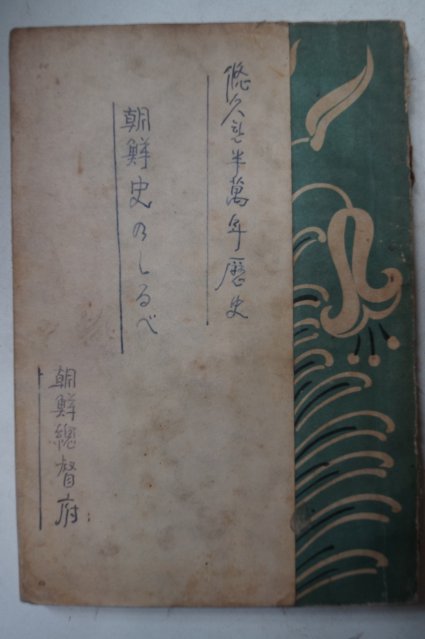 悠久한半萬年歷史
朝鮮史のしるべ
朝鮮總督府